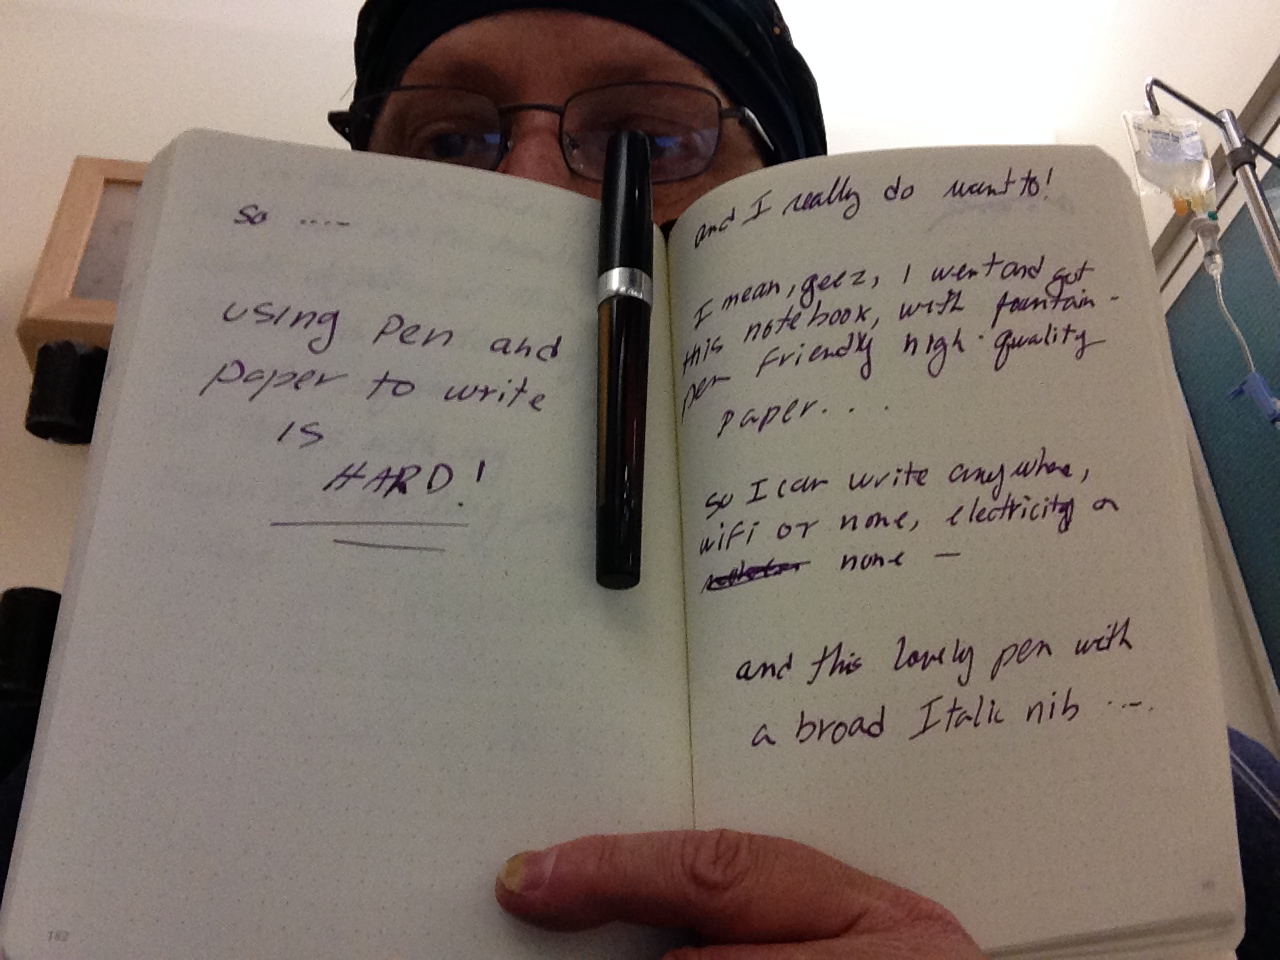 so .....
using pen and
paper to write
is
HARD!
182
and I really do want to!
I mean, geez, I went and got
this notebook, with fountain-
pen friendly high-quality
paper....
so I can write anywhere,
wifi or none, electricity or
none —
and this lovely pen with
a broad Italic nib ....